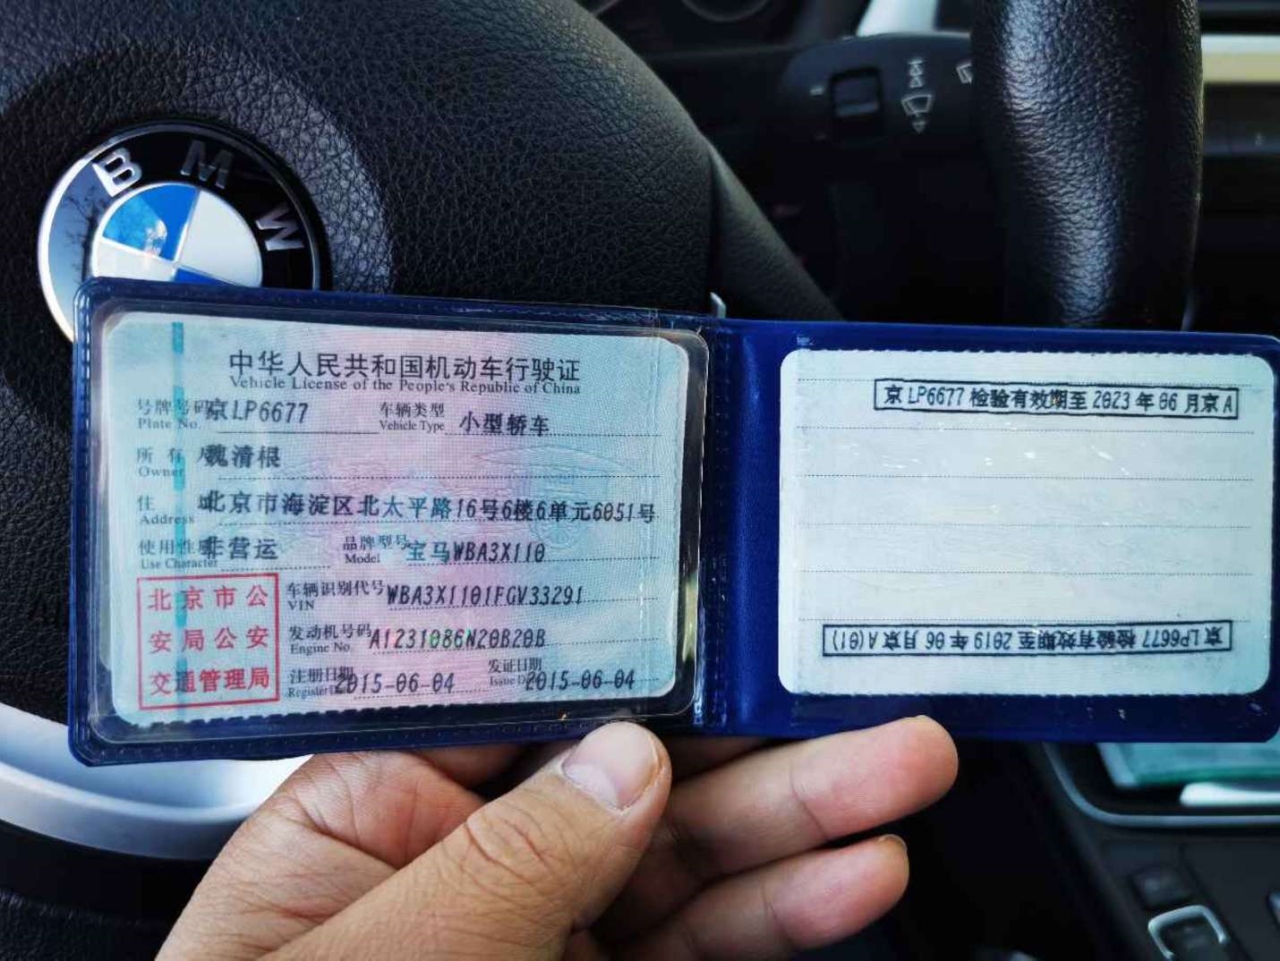 BMW
中华人民共和国机动车行驶证
Vehicle License of the People's Republic of China
号牌号码 京LP6677 车辆类型 小型轿车
Plate No. Vehicle Type
所有人 魏清根
Owner
住 址 北京市海淀区北太平路16号6楼6单元6051号
Address
使用性质 非营运 品牌型号 宝马WBA3X110
Use Character Model
北京市公
安局公安
交通管理局
车辆识别代号 WBA3X1101FGV33291
VIN
发动机号码 A1231086N20B20B
Engine No.
注册日期 2015-06-04 发证日期 2015-06-04
Register Date Issue Date
京LP6677 检验有效期至 2023 年 06 月京A
京LP6677 检验有效期至 2019 年 06 月京A(01)